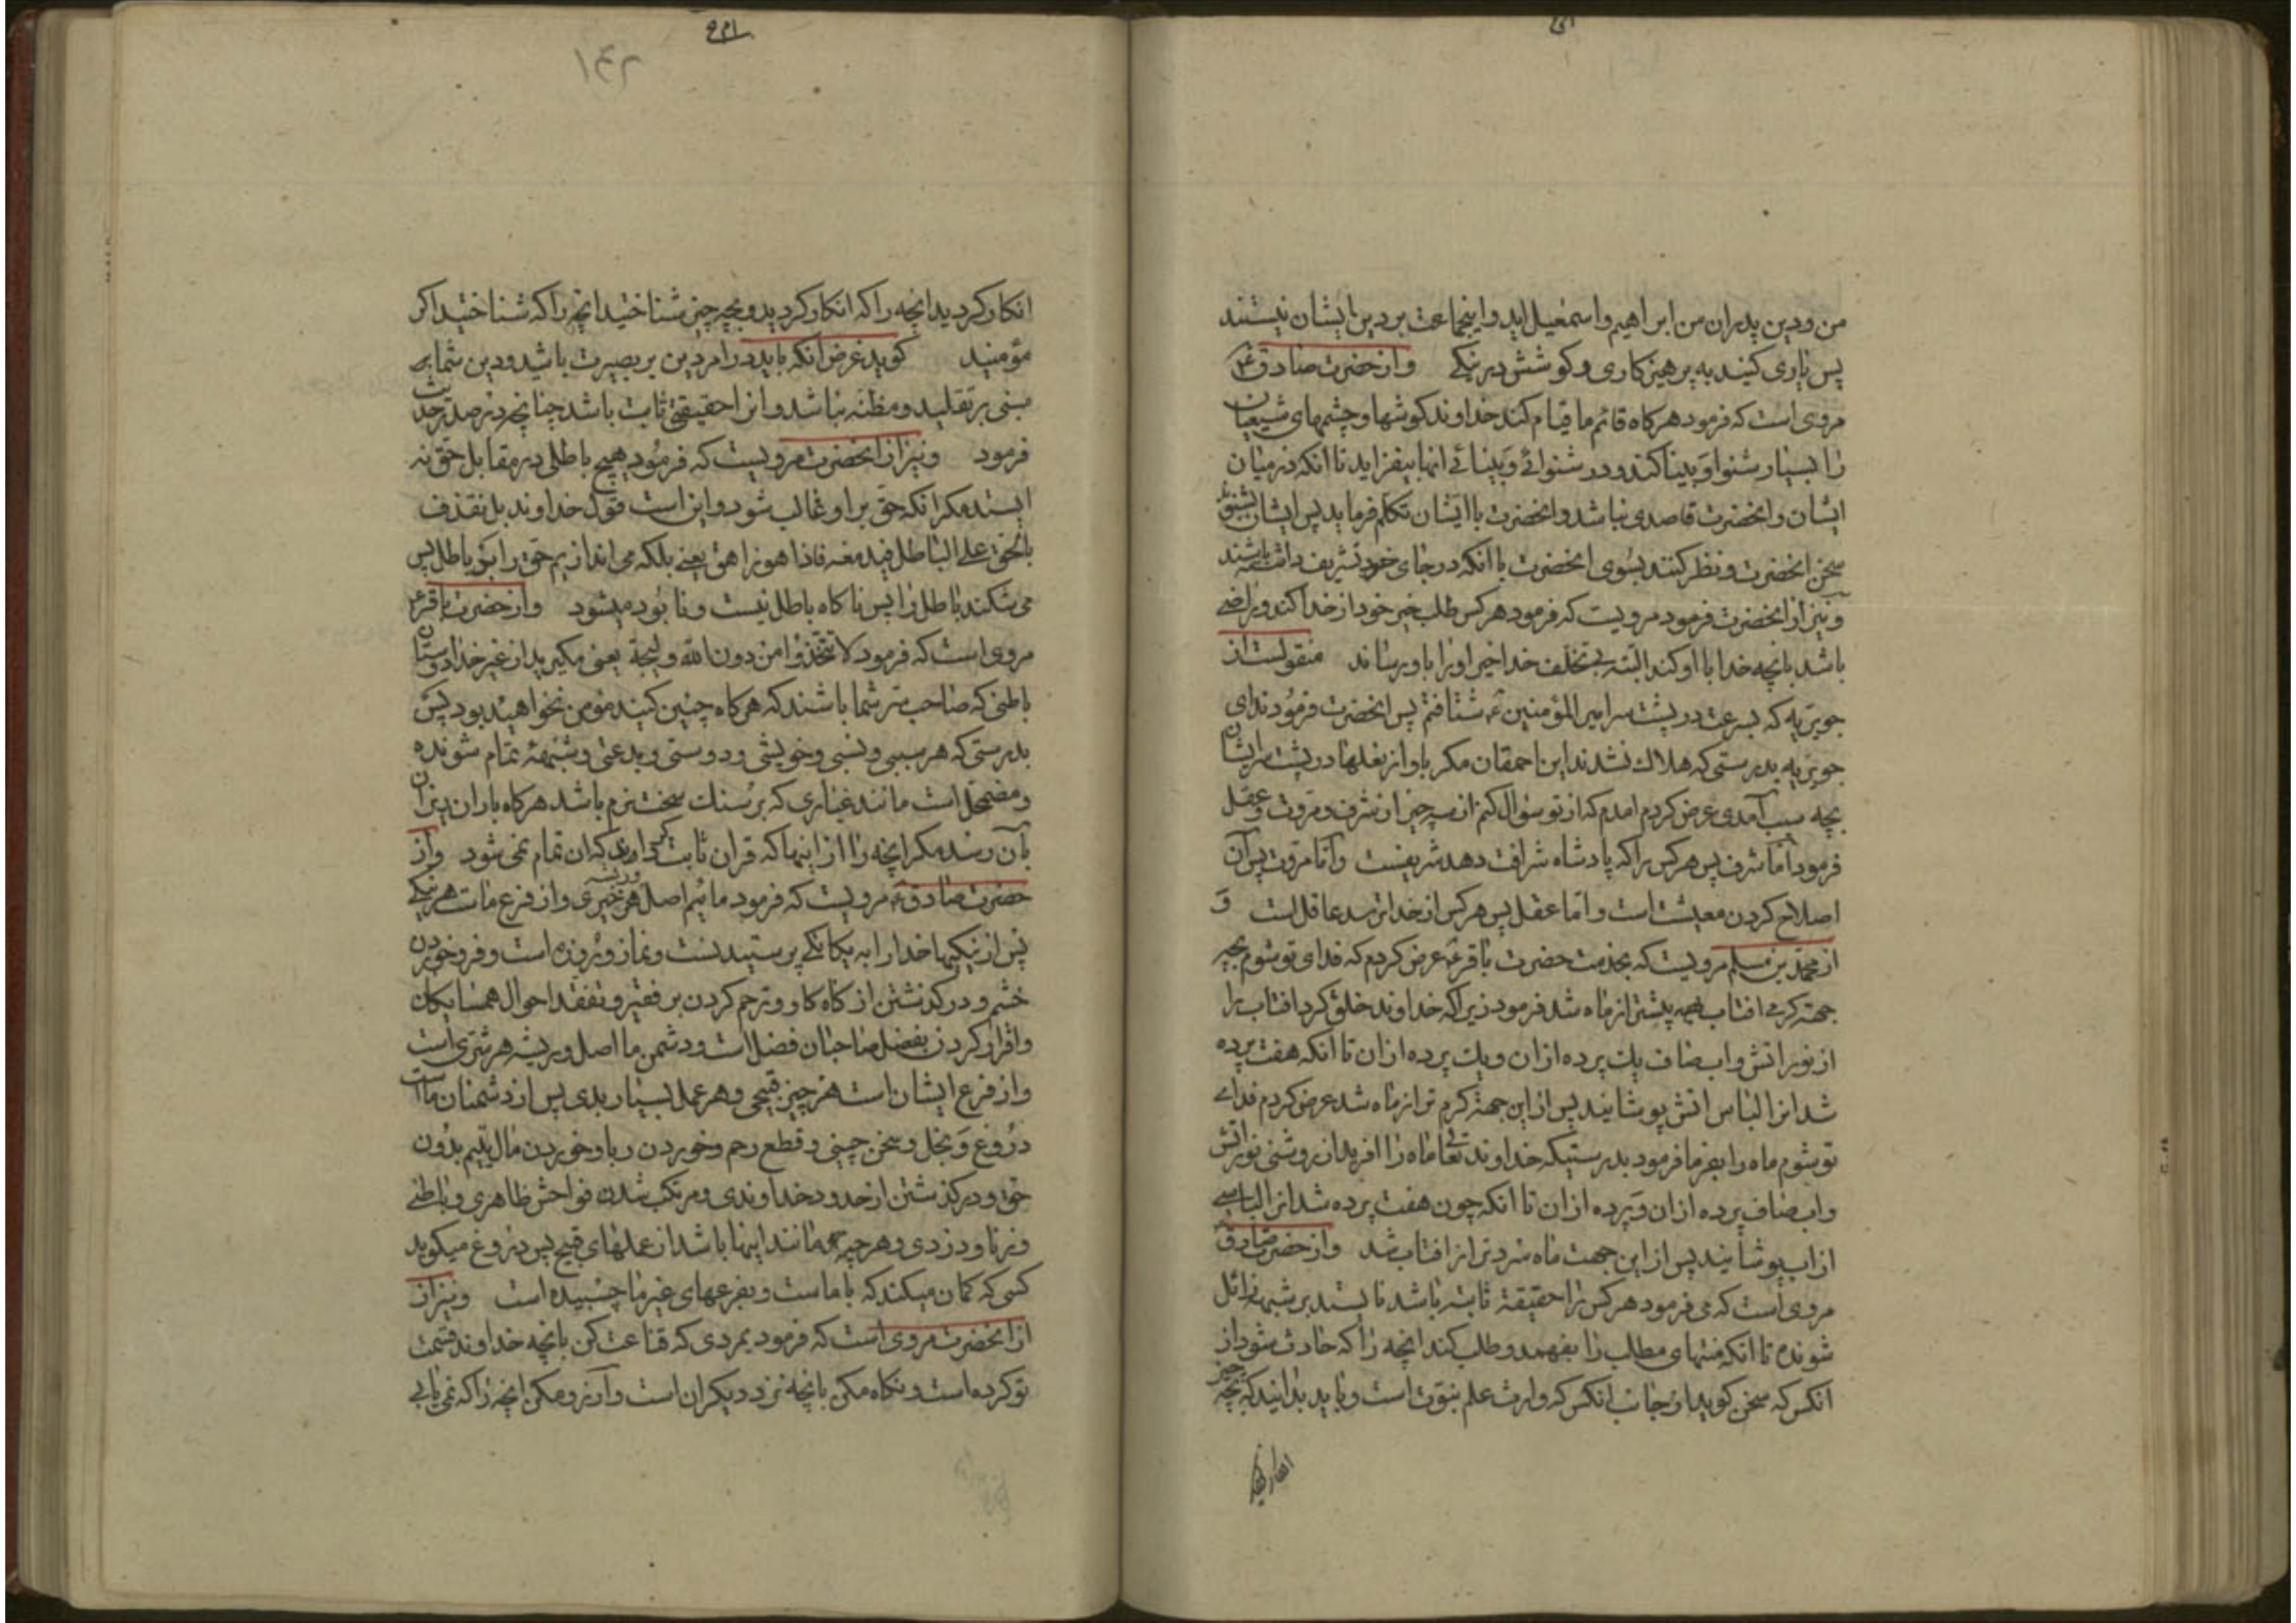 من و دین پدران من ابراهیم و اسمعیل اید و اینجماعت بر دین ایشان نیستند
پس یاری کنید به پرهیزکاری و کوشش در نیکی وازحضرت صادق ع
مروی است که فرمود هرکاه قائم ما قیام کند خداوند کوشها و چشمهای شیعیان
را بسیار شنوا و بینا کند و در شنوائی و بینائی انها بیفزاید تا انکه در میان
ایشان و انحضرت قاصدی نباشد و انحضرت با ایشان تکلم فرماید پس ایشان بشنوند
سخن انحضرت و نظر کنند بسوی انحضرت با انکه در جای خود تشریف داشته باشند
و نیز از انحضرت فرمود مرویست که فرمود هرکس طلب خیر خود از خدا کند و راضی
باشد بانچه خدا با او کند البته بی تخلف خدا خیر اورا باو رساند منقولست از
جویریه که بسرعت در پشت سر امیر المؤمنین ع شتافتم پس انحضرت فرمودند ای
جویریه بدرستی که هلاك نشدند این احمقان مکر باواز نعلها در پشت سر ایشان
بچه سبب آمدی عرض کردم امدم که از تو سؤال کنم از سه چیز از شرف و مروت و عقل
فرمود اما شرف پس هرکس را که پادشاه شرافت دهد شریفست و اما مروت پس آن
اصلاح کردن معیشت است و اما عقل پس هرکس از خدا ترسد عاقل است و
از محمد بن مسلم مرویست که بخدمت حضرت باقر ع عرض کردم که فدای تو شوم بچه
جهة کرمی افتاب بیشتر از ماه شد فرمود زیرا که خداوند خلق کرد افتاب را
از نور اتش و اب صاف یك پرده از ان و یك پرده از ان تا انکه هفت پرده
شد انرا لباس اتش پوشانید پس از این جهة کرم تر از ماه شد عرض کردم فدای
تو شوم ماه را بفرما فرمود بدرستیکه خداوند تعالی ماه را افرید از روشنی نور اتش
و اب صاف پرده از ان و پرده از ان تا انکه چون هفت پرده شد انرا لباسی
از اب پوشانید پس از این جهت ماه سردتر از افتاب شد و از حضرت صادق
مروی است که می فرمود هرکس را حقیقة ثابته باشد نایستد بر شبهه زائل
شونده تا انکه منتهای مطلب را بفهمد و طلب کند انچه را که حادث شود از
انکس که سخن کوید از جانب انکس که وارث علم نبوت است و باید بدانید که بچه چیز
انکار کردید
۱۴۲
انکار کردید انچه را که انکار کردید و بچه چیز شناختید انچه را که شناختید اکر
مؤمنید کوید غرض انکه باید در امر دین بر بصیرت باشید و دین شما به
مبنی بر تقلید و مظنه نباشد و انرا حقیقتی ثابت باشد چنانچه در صدر حدیث
فرمود و نیز از انحضرت مرویست که فرمود هیچ باطلی در مقابل حق نه
ایستد مکر انکه حق بر او غالب شود و این است قول خداوند بل نقذف
بالحق علی الباطل فیدمغه فاذا هو زاهق یعنی بلکه می اندازیم حق را بر باطل پس
می شکند باطل را پس ناکاه باطل نیست و نابود میشود و از حضرت باقر ع
مروی است که فرمود لا تتخذوا من دون الله ولیجة یعنی مکیرید از غیر خدا دوستان
باطنی که صاحب سر شما باشند که هرکاه چنین کنید مؤمن نخواهید بود پس
بدرستی که هر سببی و نسبی و خویشی و دوستی و بدعتی و شبهه تمام شونده
و مضمحل است مانند غباری که بر سنك سخت نرم باشد هرکاه باران ریزان
بآن رسد مکر انچه را از اینها که قران ثابت که ان تمام نمی شود و از
حضرت صادق ع مرویست که فرمود مائیم اصل هر خیری و از فرع ماست هر نیکی
پس از نیکیها خدا را به یکانکی پرستیدنست و نماز و روزه است و فرو خوردن
خشم و درکذشتن از کناه کار و ترحم کردن بر فقیر و تفقد احوال همسایکان
و اقرار کردن بفضل صاحبان فضل است و دشمن ما اصل و ریشه هر شری است
و از فرع ایشان است هر چیز قبیحی و هر عمل بسیار بدی پس از دشمنان ما است
دروغ و بخل و سخن چینی و قطع رحم و خوردن ربا و خوردن مال یتیم بدون
حق و درکذشتن از حدود خداوندی و مرتکب شدن فواحش ظاهری و باطنی
و زنا و دزدی و هرچه مانند اینها باشد از عملهای قبیح پس دروغ میکوید
کسی که کمان میکند که با ماست و بفرعهای غیر ما چسبیده است و نیز از
از انحضرت مروی است که فرمود بمردی که قناعت کن بانچه خداوند قسمت
تو کرده است و نکاه مکن بانچه نزد دیکران است و آرزو مکن انچه را که نمی یابی